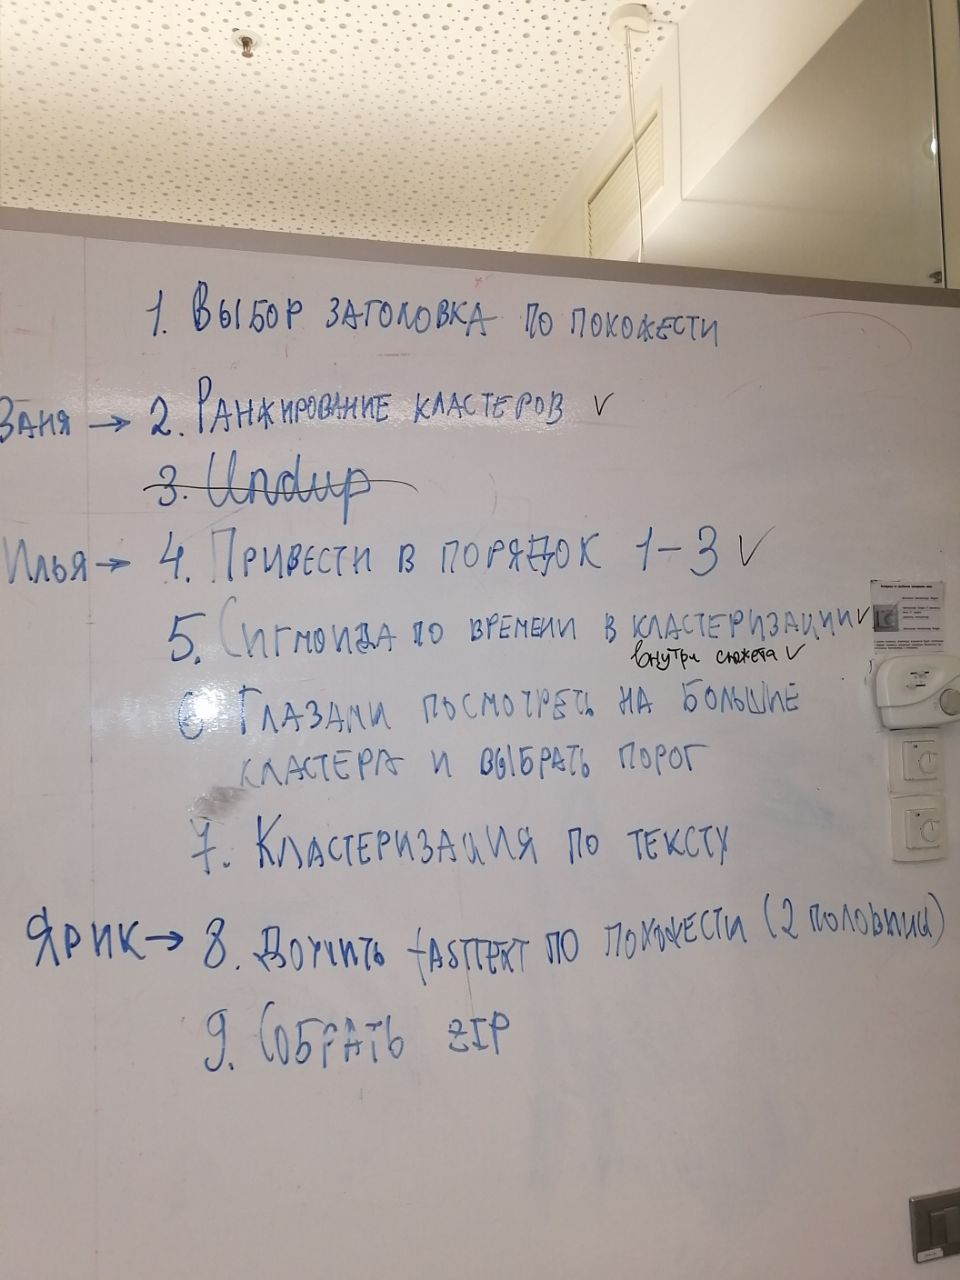 1. Выбор заголовка по похожести
Ваня → 2. Ранжирование кластеров ✓
3. Undup
Илья → 4. Привести в порядок 1-3 ✓
5. Сигмоида по времени в кластеризации ✓
внутри сюжета ✓
6 Глазами посмотреть на большие
кластера и выбрать порог
7. Кластеризация по тексту
Ярик → 8. Доучить fasttext по похожести (2 половины)
9. Собрать ZIP